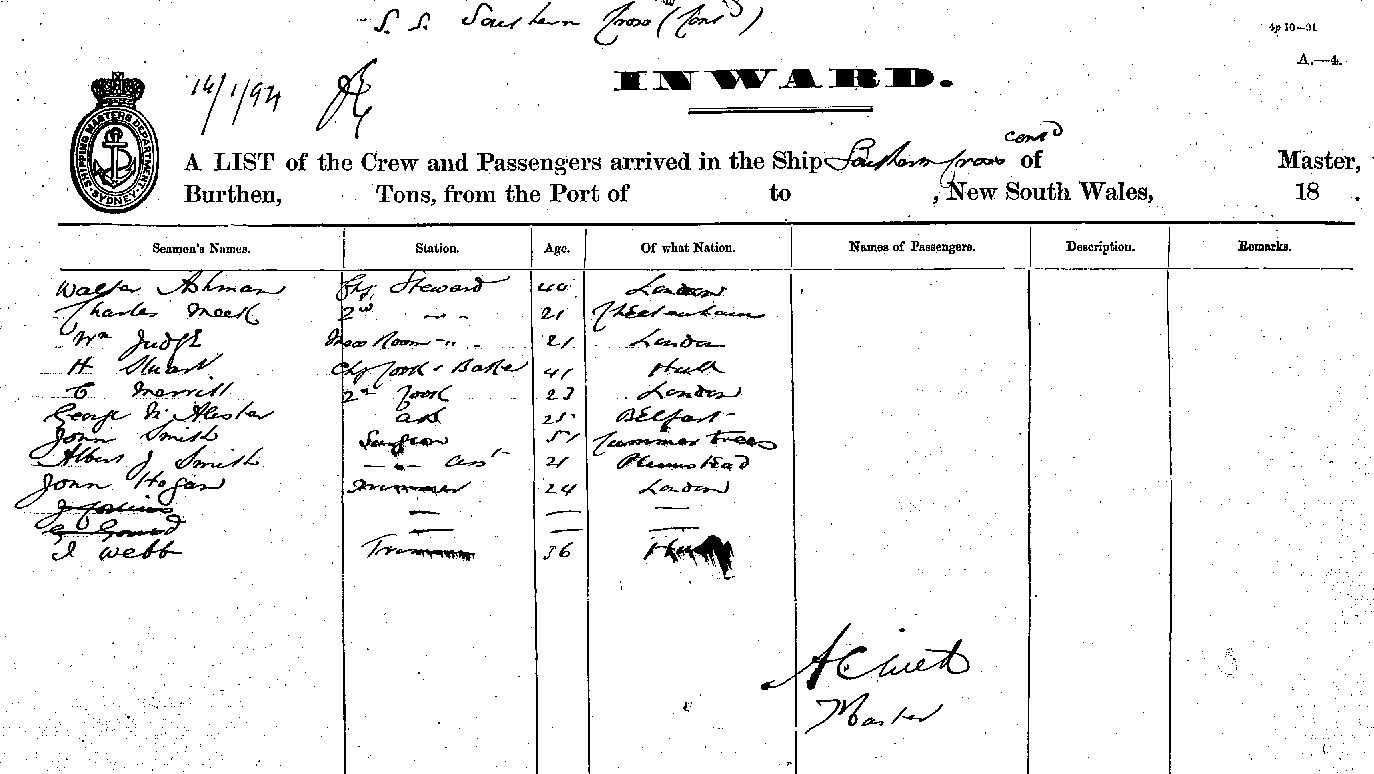 S. S. Southern Cross (Cont'd)
4p 10—91
A.—4.
14/1/94
INWARD.
SHIPPING MASTERS DEPARTMENT. SYDNEY.
cont'd
A LIST of the Crew and Passengers arrived in the Ship Southern Cross of Master,
Burthen, Tons, from the Port of to , New South Wales, 18 .
Seamen's Names. Station. Age. Of what Nation. Names of Passengers. Description. Remarks.
Walter Ashman Chf Steward 40 London
Charles Meek 2nd " " 21 Cheltenham
Wm Judge Mess Room " " 21 London
H Stuart Chf Cook & Baker 41 Hull
C Merrill 2nd Cook 23 London
George Mc Alister ass 25 Belfast
John Smith Surgeon 51 Cummertrees
Albert J Smith — " — Ass't 21 Plumstead
John Hogan Trimmer 24 London
— — —
— — —
J Webb Trimmer 36 Hull
Master